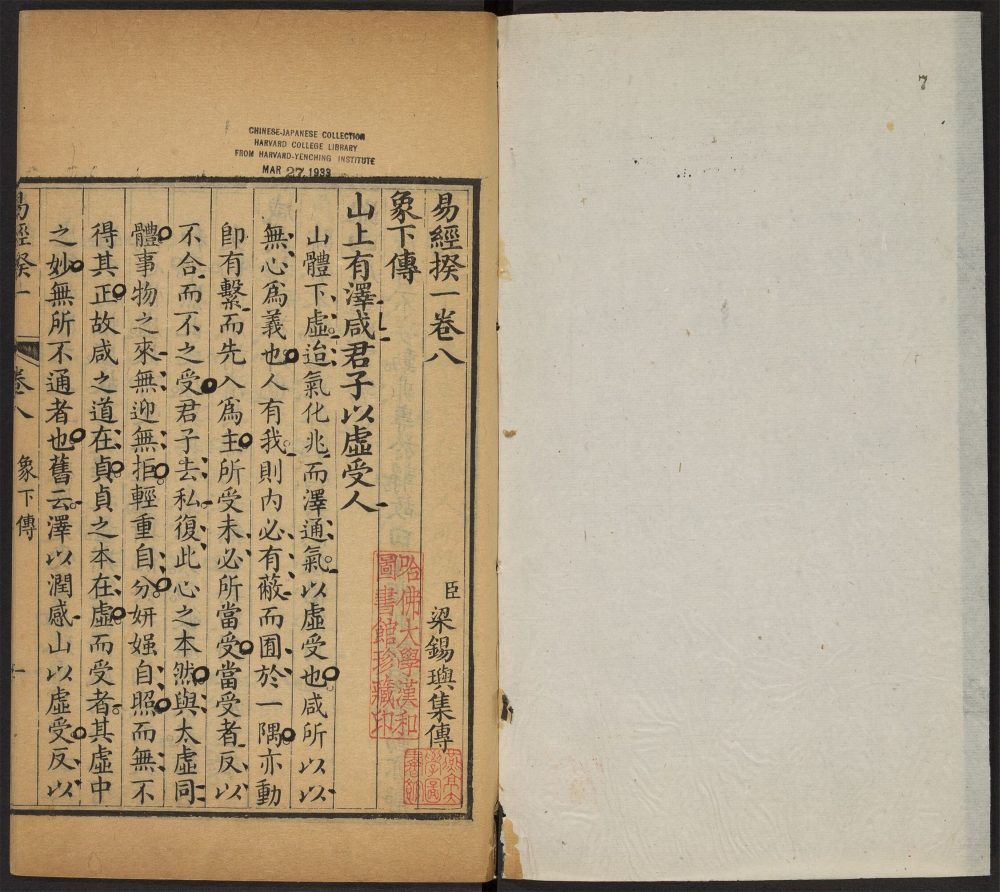 7
CHINESE-JAPANESE COLLECTION
HARVARD COLLEGE LIBRARY
FROM HARVARD-YENCHING INSTITUTE
MAR 27 1933
易經揆一卷八
臣 梁錫璵集傳
象下傳
哈佛大學漢和
圖書館珍藏印
山上有澤咸君子以虛受人
山體下虛迨氣化兆而澤通氣以虛受也咸所以以
無心爲義也人有我則內必有蔽而囿於一隅亦動
卽有繫而先入爲主所受未必所當受當受者反以
不合而不之受君子去私復此心之本然與太虛同
體事物之來無迎無拒輕重自分妍媸自照而無不
得其正故咸之道在貞貞之本在虛而受者其虛中
之妙無所不通者也舊云澤以潤感山以虛受反以
易經揆一
卷八
象下傳